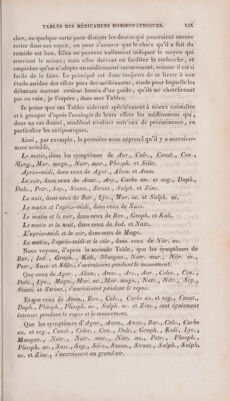 TABLES DES MÉDICAMENS HOMŒOPATHIQUES. XIX
cher, en quelque sorte pour dissiper les doutes qui pourraient encore
rester dans son esprit, ou pour s'assurer que le choix qu'il a fait du
remède est bon. Elles ne peuvent nullement indiquer le moyen qui
convient le mieux; mais elles doivent en faciliter la recherche, et
empêcher qu'on n'adopte un médicament inconvenant, comme il est si
facile de le faire. Le principal est donc toujours de se livrer à une
étude assidue des effets purs des médicamens, étude pour laquelle les
débutans surtout avaient besoin d'un guide, qu'ils ne chercheront
pas en vain, je l'espère, dans mes Tables.
Je pense que ces Tables aideront spécialement à mieux connaître
et à grouper d'après l'analogie de leurs effets les médicamens qui,
dans un cas donné, semblent rivaliser entr'eux de prééminence, en
particulier les antipsoriques.
Ainsi, par exemple, la première nous apprend qu'il y a accroisse-
ment notable,
Le matin, dans les symptômes de Aur., Calc., Caust., Con.,
Mang., Mur. magn., Natr. mur., Phosph. et Silic.
Après-midi, dans ceux de Agar., Alum. et Amm.
Le soir, dans ceux de Anac., Arg., Carbo an. et veg., Daph.,
Dulc., Petr., Sep., Stann., Stront., Sulph. et Zinc.
La nuit, dans ceux de Bar., Lyc., Mur. ac. et Sulph. ac.
Le matin et l'après-midi, dans ceux de Sass.
Le matin et le soir, dans ceux de Bov., Graph. et Kali.
Le matin et la nuit, dans ceux de Iod. et Natr.
L'après-midi et le soir, dans ceux de Magn.
Le matin, l'après-midi et le soir, dans ceux de Nitr. ac.
Nous voyons, d'après la seconde Table, que les symptômes de
Bar., Iod., Graph., Kali, Mangan., Natr. mur., Nitr. ac.,
Petr., Sass. et Silic., s'accroissent pendant le mouvement.
Que ceux de Agar., Alum., Anac., Ars., Aur., Coloc., Con.,
Dulc., Lyc., Magn., Mur. ac., Mur. magn., Natr., Nitr., Sep.,
Stann. et Stront., s'accroissent pendant le repos.
Et que ceux de Amm., Bov., Calc., Carbo an. et veg., Caust.,
Daph., Phosph., Phosph. ac., Sulph. ac. et Zinc., sont également
intenses pendant le repos et le mouvement.
Que les symptômes d'Agar., Amm., Anac., Bar., Calc., Carbo
an. et veg., Caust., Coloc., Con., Dulc., Graph., Kali, Lyc.,
Mangan., Natr., Natr. mur., Nitr. ac., Petr., Phosph.,
Phosph. ac., Sass., Sep., Silic., Stann., Stront., Sulph., Sulph.
ac. et Zinc., s'accroissent au grand air.